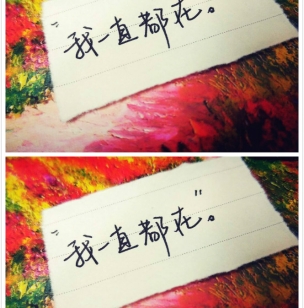 “我一直都在。
“我一直都在”。